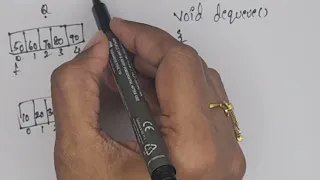 Q
void dequeue()
{
50 60 70 80 90
0 1 2 3 4
f
10 20
0 1